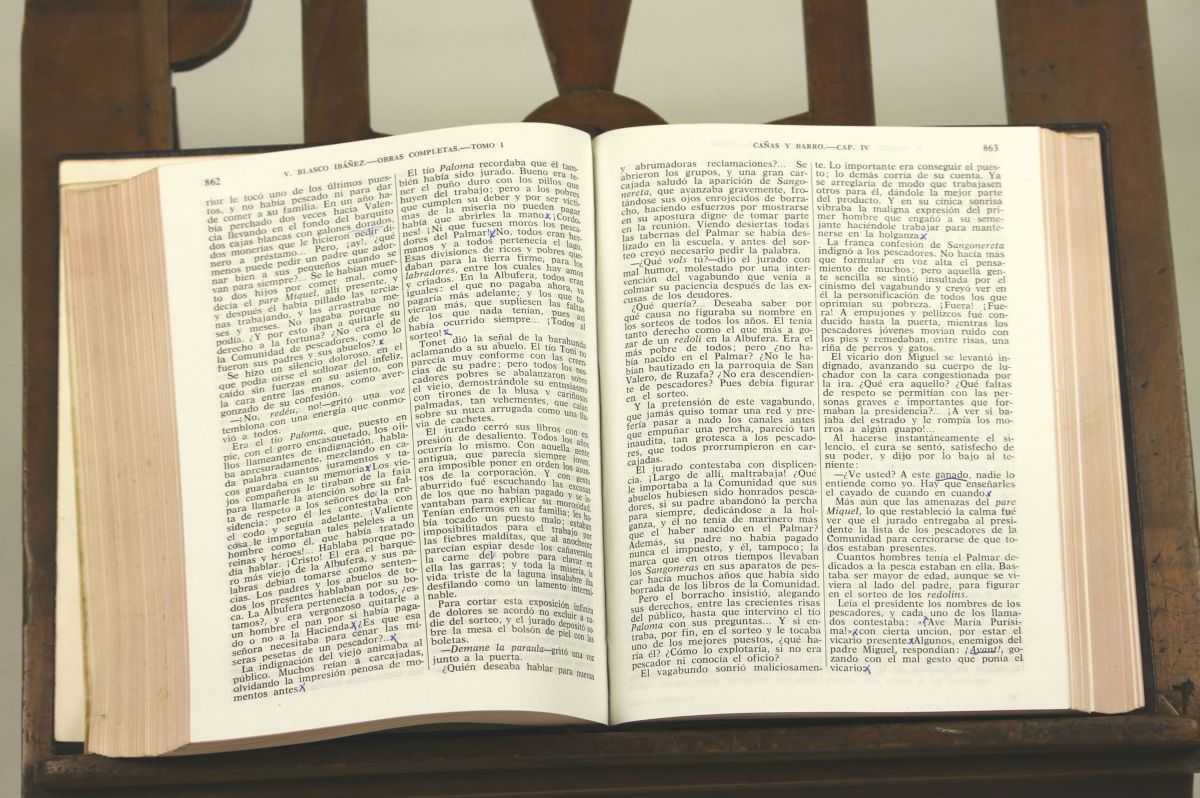 862
V. BLASCO IBÁÑEZ.—OBRAS COMPLETAS.—TOMO I
rior le tocó uno de los últimos pues-
tos, y no había pescado ni para dar
de comer a su familia. En un año ha-
bía perchado dos veces hacia Valen-
cia llevando en el fondo del barquito
dos cajas blancas con galones dorados,
dos monerías que le hicieron pedir di-
nero a préstamo... Pero, ¡ay!, ¿qué
menos puede pedir un padre que ador-
nar bien a sus pequeños cuando se
van para siempre?... Se le habían muer-
to dos hijos por comer mal, como
decía el pare Miquel, allí presente, y
y después él había pillado las tercia-
nas trabajando, y las arrastraba me-
ses y meses. No pagaba porque no
podía. ¿Y por esto iban a quitarle su
derecho a la fortuna? ¿No era él de
la Comunidad de pescadores, como lo
fueron sus padres y sus abuelos?
Se hizo un silencio doloroso, en el
que podía oírse el sollozar del infeliz,
caído sin fuerzas en su asiento, con
la cara entre las manos, como aver-
gonzado de su confesión.
—¡No, redéu, no!—gritó una voz
temblona con una energía que conmo-
vió a todos.
Era el tío Paloma, que, puesto en
pie, con el gorro encasquetado, los oji-
llos llameantes de indignación, habla-
ba apresuradamente, mezclando en ca-
da palabra cuantos juramentos y ta-
cos guardaba en su memoria. Los vie-
jos compañeros le tiraban de la faja
para llamarle la atención sobre su fal-
ta de respeto a los señores de la pre-
sidencia; pero él les contestaba con
el codo y seguía adelante. ¡Valiente
cosa le importaban tales peleles a un
hombre como él, que había tratado
reinas y héroes!... Hablaba porque po-
día hablar. ¡Cristo! El era el barque-
ro más viejo de la Albufera, y sus pa-
labras debían tomarse como senten-
cias. Los padres y los abuelos de to-
dos los presentes hablaban por su bo-
ca. La Albufera pertenecía a todos, ¿es-
tamos?, y era vergonzoso quitarle a
un hombre el pan por si había paga-
do o no a la Hacienda. ¿Es que esa
señora necesitaba para cenar las mí-
seras pesetas de un pescador?...
La indignación del viejo animaba al
público. Muchos reían a carcajadas,
olvidando la impresión penosa de mo-
mentos antes.
El tío Paloma recordaba que él tam-
bién había sido jurado. Bueno era te-
ner el puño duro con los pillos que
huyen del trabajo; pero a los pobres
que cumplen su deber y por ser vícti-
mas de la miseria no pueden pagar
había que abrirles la mano. ¡Cordo,
nes! ¡Ni que fuesen moros los pesca-
dores del Palmar! No, todos eran her-
manos y a todos pertenecía el lago.
Esas divisiones de ricos y pobres que-
daban para la tierra firme, para los
labradores, entre los cuales hay amos
y criados. En la Albufera, todos eran
iguales: el que no pagaba ahora, ya
pagaría más adelante; y los que tu-
vieran más, que supliesen las faltas
de los que nada tenían, pues así
había ocurrido siempre... ¡Todos al
sorteo!
Tonet dió la señal de la barahunda
aclamando a su abuelo. El tío Toni no
parecía muy conforme con las creen-
cias de su padre; pero todos los pes-
cadores pobres se abalanzaron sobre
el viejo, demostrándole su entusiasmo
con tirones de la blusa y cariñosas
palmadas, tan vehementes, que caían
sobre su nuca arrugada como una llu-
via de cachetes.
El jurado cerró sus libros con ex-
presión de desaliento. Todos los años
ocurría lo mismo. Con aquella gente
antigua, que parecía siempre joven,
era imposible poner en orden los asun-
tos de la corporación. Y con gesto
aburrido fué escuchando las excusas
de los que no habían pagado y se le-
vantaban para explicar su morosidad.
Tenían enfermos en su familia; les ha-
bía tocado un puesto malo; estaban
imposibilitados para el trabajo por
las fiebres malditas, que al anochecer
parecían espiar desde los cañaverales
la carne del pobre para clavar en
ella las garras; y toda la miseria, la
vida triste de la laguna insalubre iba
desfilando como un lamento intermi-
nable.
Para cortar esta exposición infinita
de dolores se acordó no excluir a na-
die del sorteo, y el jurado depositó so-
bre la mesa el bolsón de piel con las
boletas.
—Demane la paraula—gritó una voz
junto a la puerta.
¿Quién deseaba hablar para nuevas
CAÑAS Y BARRO.—CAP. IV
863
y abrumadoras reclamaciones?... Se
abrieron los grupos, y una gran car-
cajada saludó la aparición de Sango-
nereta, que avanzaba gravemente, fro-
tándose sus ojos enrojecidos de borra-
cho, haciendo esfuerzos por mostrarse
en su apostura digne de tomar parte
en la reunión. Viendo desiertas todas
las tabernas del Palmar se había des-
lizado en la escuela, y antes del sor-
teo creyó necesario pedir la palabra.
—¿Qué vols tú?—dijo el jurado con
mal humor, molestado por una inter-
vención del vagabundo que venía a
colmar su paciencia después de las ex-
cusas de los deudores.
¿Qué quería?... Deseaba saber por
qué causa no figuraba su nombre en
los sorteos de todos los años. El tenía
tanto derecho como el que más a go-
zar de un redolí en la Albufera. Era el
más pobre de todos; pero ¿no ha-
bía nacido en el Palmar? ¿No le ha-
bían bautizado en la parroquia de San
Valero, de Ruzafa? ¿No era descendien-
te de pescadores? Pues debía figurar
en el sorteo.
Y la pretensión de este vagabundo,
que jamás quiso tomar una red y pre-
fería pasar a nado los canales antes
que empuñar una percha, pareció tan
inaudita, tan grotesca a los pescado-
res, que todos prorrumpieron en car-
cajadas.
El jurado contestaba con displicen-
cia. ¡Largo de allí, maltrabaja! ¿Qué
le importaba a la Comunidad que sus
abuelos hubiesen sido honrados pesca-
dores, si su padre abandonó la percha
para siempre, dedicándose a la hol-
ganza, y él no tenía de marinero más
que el haber nacido en el Palmar?
Además, su padre no había pagado
nunca el impuesto, y él, tampoco; la
marca que en otros tiempos llevaban
los Sangoneras en sus aparatos de pes-
car hacía muchos años que había sido
borrada de los libros de la Comunidad.
Pero el borracho insistió, alegando
sus derechos, entre las crecientes risas
del público, hasta que intervino el tío
Paloma con sus preguntas... Y si en-
traba, por fin, en el sorteo y le tocaba
uno de los mejores puestos, ¿qué ha-
ría él? ¿Cómo lo explotaría, si no era
pescador ni conocía el oficio?
El vagabundo sonrió maliciosamen-
te. Lo importante era conseguir el pues-
to; lo demás corría de su cuenta. Ya
se arreglaría de modo que trabajasen
otros para él, dándole la mejor parte
del producto. Y en su cínica sonrisa
vibraba la maligna expresión del pri-
mer hombre que engañó a su seme-
jante haciéndole trabajar para mante-
nerse en la holganza.
La franca confesión de Sangonereta
indignó a los pescadores. No hacía más
que formular en voz alta el pensa-
miento de muchos; pero aquella gen-
te sencilla se sintió insultada por el
cinismo del vagabundo y creyó ver en
él la personificación de todos los que
oprimían su pobreza. ¡Fuera! ¡Fue-
ra! A empujones y pellizcos fué con-
ducido hasta la puerta, mientras los
pescadores jóvenes movían ruido con
los pies y remedaban, entre risas, una
riña de perros y gatos.
El vicario don Miguel se levantó in-
dignado, avanzando su cuerpo de lu-
chador con la cara congestionada por
la ira. ¿Qué era aquello? ¿Qué faltas
de respeto se permitían con las per-
sonas graves e importantes que for-
maban la presidencia?... ¡A ver si ba-
jaba del estrado y le rompía los mo-
rros a algún guapo!...
Al hacerse instantáneamente el si-
lencio, el cura se sentó, satisfecho de
su poder, y dijo por lo bajo al te-
niente:
—¿Ve usted? A este ganado, nadie lo
entiende como yo. Hay que enseñarles
el cayado de cuando en cuando.
Más aún que las amenazas del pare
Miquel, lo que restableció la calma fué
ver que el jurado entregaba al presi-
dente la lista de los pescadores de la
Comunidad para cerciorarse de que to-
dos estaban presentes.
Cuantos hombres tenía el Palmar de-
dicados a la pesca estaban en ella. Bas-
taba ser mayor de edad, aunque se vi-
viera al lado del padre, para figurar
en el sorteo de los redolins.
Leía el presidente los nombres de los
pescadores, y cada uno de los llama-
dos contestaba: «¡Ave María Purísi-
ma!» con cierta unción, por estar el
vicario presente. Algunos, enemigos del
padre Miguel, respondían: ¡Avant!, go-
zando con el mal gesto que ponía el
vicario.